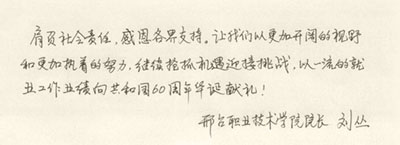 肩负社会责任，感恩各界支持。让我们以更加开阔的视野
和更加执着的努力，继续抢抓机遇迎接挑战，以一流的就
业工作业绩向共和国60周年华诞献礼！
邢台职业技术学院院长 刘丛